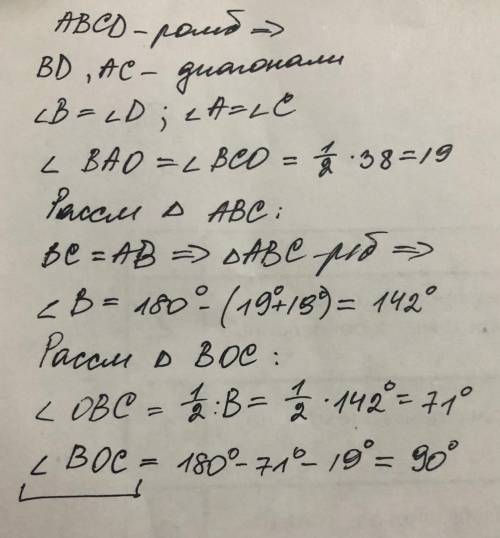 ABCD – ромб ⇒
BD, AC – диагонали
∠B = ∠D ; ∠A = ∠C
∠ BAO = ∠ BCO = 1/2 · 38 = 19
Рассм △ ABC :
BC = AB ⇒ △ABC – р/б ⇒
∠ B = 180° – (19° + 19°) = 142°
Рассм △ BOC :
∠ OBC = 1/2 : B = 1/2 · 142° = 71°
∠ BOC = 180° – 71° – 19° = 90°